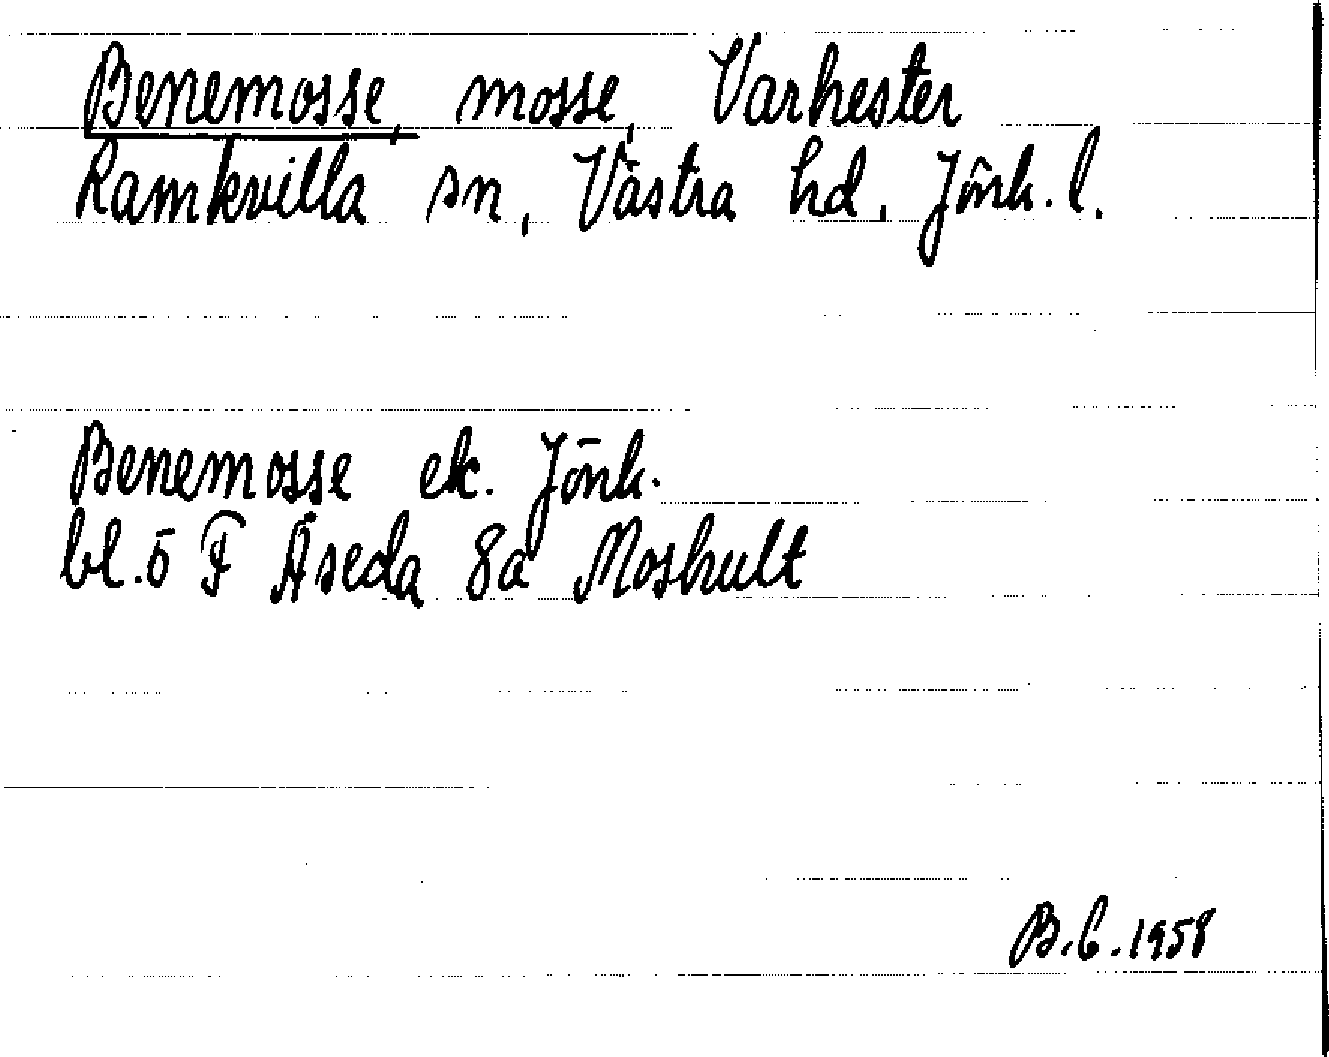 Benemosse, mosse, Varhester
Ramkvilla sn, Västra hd, Jönk. l.
Benemosse ek. Jönk.
bl. 5 F Åseda 8a Moshult
B.C. 1958